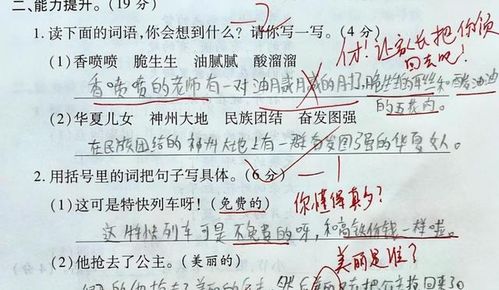 二、能力提升。(19分)
1.读下面的词语,你会想到什么?请你写一写。(4分)
(1)香喷喷 脆生生 油腻腻 酸溜溜
休!让家长把你领回去吧!
香喷喷的老师有一对油腻腻的
的五花肉。
(2)华夏儿女 神州大地 民族团结 奋发图强
在民族团结的神州大地上有一群奋发图强的华夏女人。
2.用括号里的词把句子写具体。(6分)
(1)这可是特快列车呀!(免费的)
你懂得真多?
这特快列车可是不免费的呀,和高铁价钱一样啦。
(2)他抢去了公主。(美丽的)
美丽是谁?
的他抢去了美丽的